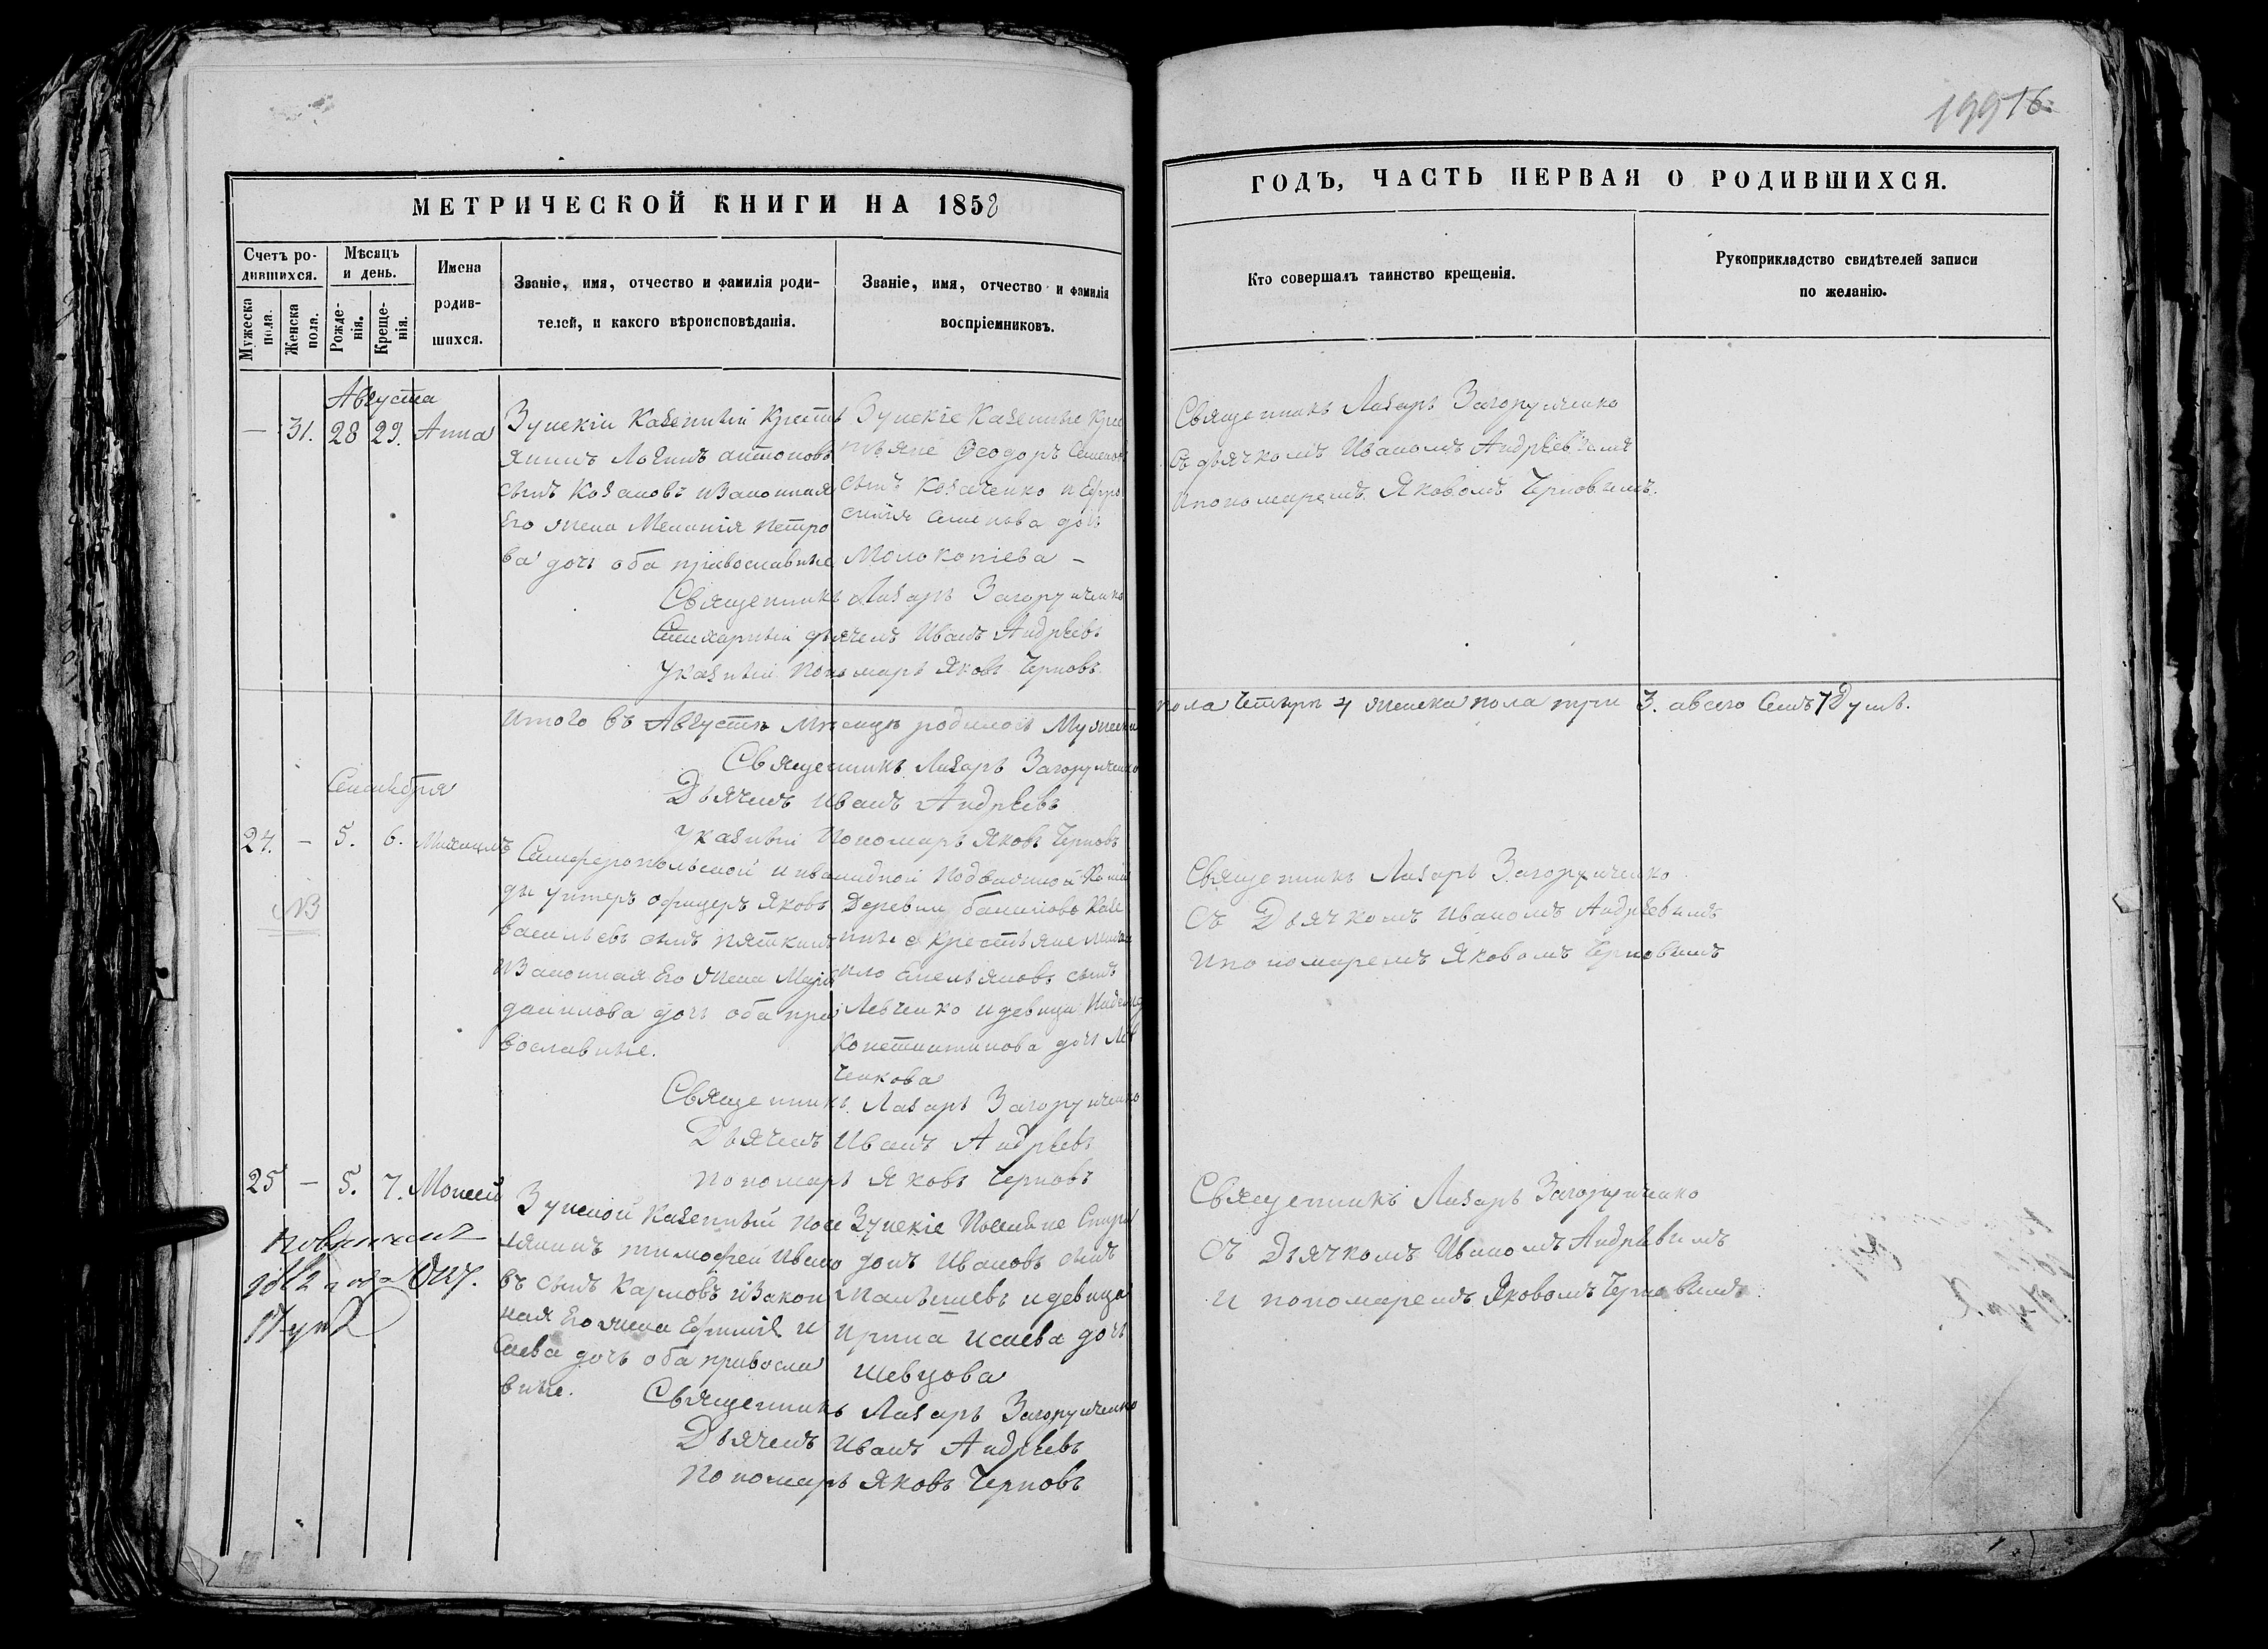 19976
МЕТРИЧЕСКОЙ КНИГИ НА 1858
ГОДЪ, ЧАСТЬ ПЕРВАЯ О РОДИВШИХСЯ.
Счетъ ро-
дившихся.
Мужеска
пола.
Женска
пола.
Мѣсяцъ
и день.
Рожде-
нія.
Креще-
нія.
Имена
родив-
шихся.
Званіе, имя, отчество и фамилія роди-
телей, и какого вѣроисповѣданія.
Званіе, имя, отчество и фамилія
воспріемниковъ.
Кто совершалъ таинство крещенія.
Рукоприкладство свидѣтелей записи
по желанію.
Августа
— 31. 28 29. Анна
Зуйскій Казенный Кресть
янинъ Логинъ антоновъ
сынъ Козаковъ иЗаконная
Его жена Меланія Петро
ва дочь оба православные
Зуйскіе Казенные Крес
тьяне Ѳеодоръ Семеновъ
сынъ Козаченко и Ефро
синія Семенова дочь
Молокопіева –
Священникъ Лазарь Загоруйченко
Съ дьячкомъ Иваномъ Андрѣевымъ
Ипономаремъ Яковомъ Черновымъ.
Священникъ Лазарь Загоруйченко
Стихарный дьячекъ Иванъ Андрѣевъ
Указный Пономарь Яковъ Черновъ.
Итого въ Августѣ Мѣсяцѣ родилось Мужеска
пола Четыри 4 женска пола три 3. авсего Семь 7 Душъ.
Священникъ Лазарь Загоруйченко
Дьячекъ Иванъ Андрѣевъ
Указный Пономарь Яковъ Черновъ
Сентября
24. — 5. 6. Михаилъ
NB
Симферопольской инвалидной Подвижной Коман
ды Унтеръ офицеръ Яковъ
Васильевъ сынъ Пяткинъ
иЗаконная Его жена Марія
данилова дочь оба пра
вославные.
Деревни Казе
нные Крестьяне Миха
ило Емельяновъ сынъ
Левченко идевица Надежда
Константинова дочь Лев
ченкова
Священникъ Лазарь Загоруйченко
Съ Дьячкомъ Иваномъ Андрѣевымъ
Ипономаремъ Яковомъ Черновымъ
Священникъ Лазарь Загоруйченко
Дьячекъ Иванъ Андрѣевъ
Пономарь Яковъ Черновъ
25 — 5. 7. Моисей
Зуйской Казенный Посе
лянинъ тимофей Ивано
въ сынъ Карповъ иЗакон
ная Его жена И
саева дочь оба правосла
вные.
Зуйскіе Поселяне Спири
донъ Ивановъ сынъ
идевица
Ирина Исаева дочь
Шевцова
Священникъ Лазарь Загоруйченко
Съ Дьячкомъ Иваномъ Андрѣевымъ
И пономаремъ Яковомъ Черновымъ
Священникъ Лазарь Загоруйченко
Дьячекъ Иванъ Андрѣевъ
Пономарь Яковъ Черновъ